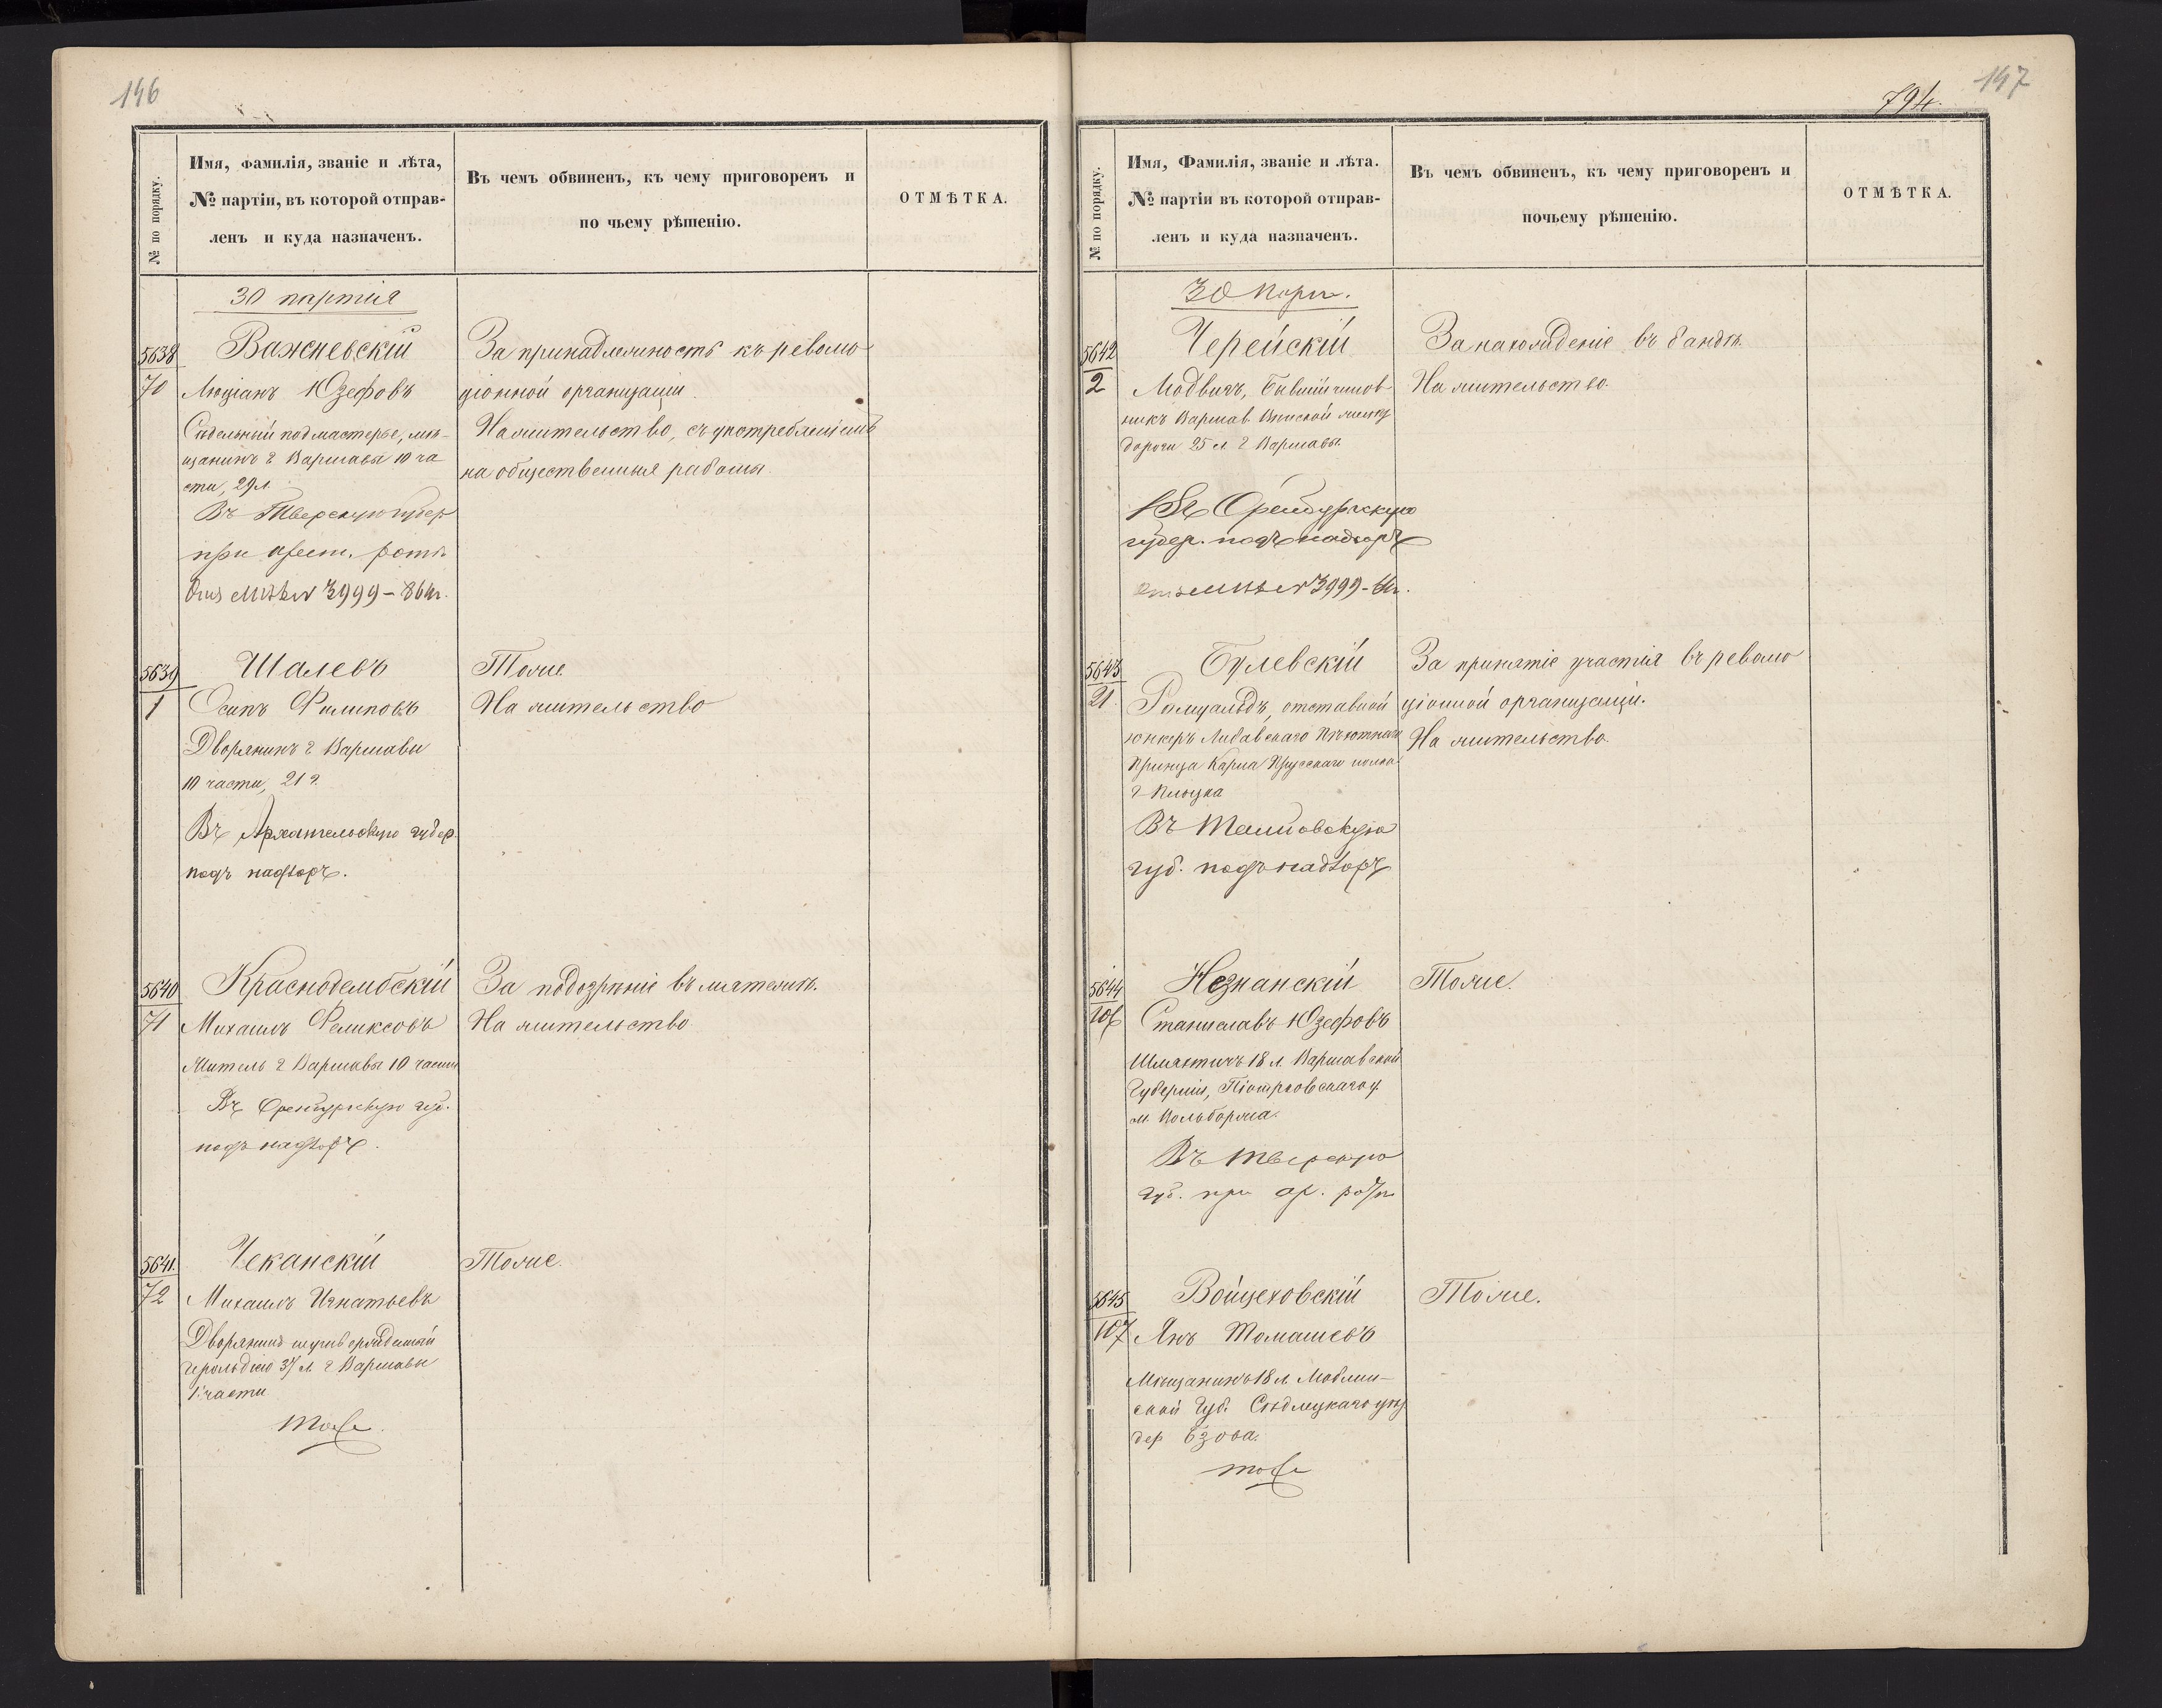 146
№ по порядку.
Имя, Фамилія, званіе и лѣта,
№ партіи, въ которой отправ-
ленъ и куда назначенъ.
Въ чемъ обвиненъ, къ чему приговоренъ и
по чьему рѣшенію.
ОТМѢТКА.
30 партія
5638
70
Важневскій
Люціанъ Юзефовъ
Сѣдельный подмастерье, мѣ-
щанинъ г Варшавы 10 ча
сти, 29 л.
Въ Тверскую губер
при арест. ротѣ
3999 – 864 г.
За принадлежность къ револю
ціонной организаціи
На жительство, съ употребленіемъ
на общественныя работы.
5639
1
Шалевъ
Осипъ Филиповъ
Дворянинъ г Варшавы
10 части, 21 г.
Въ Архангельскую губер
подъ надзоръ.
Тоже.
На жительство
5640
71
Краснодембскій
Михаилъ Феликсовъ
Житель г Варшавы 10 части
Въ Оренбургскую губ.
подъ надзоръ.
За подозрѣніе въ мятежѣ.
На жительство
5641.
72
Чеканскій
Михаилъ Игнатьевъ
Дворянинъ
герольдіею 37 л. г Варшавы
1 части
тоже
Тоже.
147
794.
№ по порядку.
Имя, Фамилія, званіе и лѣта.
№ партіи въ которой отправ-
ленъ и куда назначенъ.
Въ чемъ обвиненъ, къ чему приговоренъ и
почьему рѣшенію.
ОТМѢТКА.
30 парт.
5642
2
Черейскій
Людвигъ, бывшій чинов-
никъ Варшав. Вѣнской
дороги 25 л. г Варшавы.
Въ Оренбургскую
губер. подъ надзоръ
3999 – 64 г.
За нахожденіе въ бандѣ.
На жительство.
5643
21
Булевскій
Ромуальдъ, отставной
юнкеръ Либавскаго Пѣхотнаго
Принца Карла Прусскаго полка
г Плоцка
Въ Тамбовскую
губ. подъ надзоръ
За принятіе участія въ револю
ціонной организаціи.
На жительство.
5644
106
Незнанскій
Станиславъ Юзефовъ
Шляхтичъ 18 л. Варшавской
Губерніи, Піотрковскаго у.
м. Вольборжа.
Въ Тверскую
губ. при ар. ротѣ
Тоже.
5645
107
Войцеховскій
Янъ Томашевъ
Мѣщанинъ 18 л. Люблин-
ской Губ. Сѣдлецкаго уѣз.
дер Бзова.
тоже
Тоже.